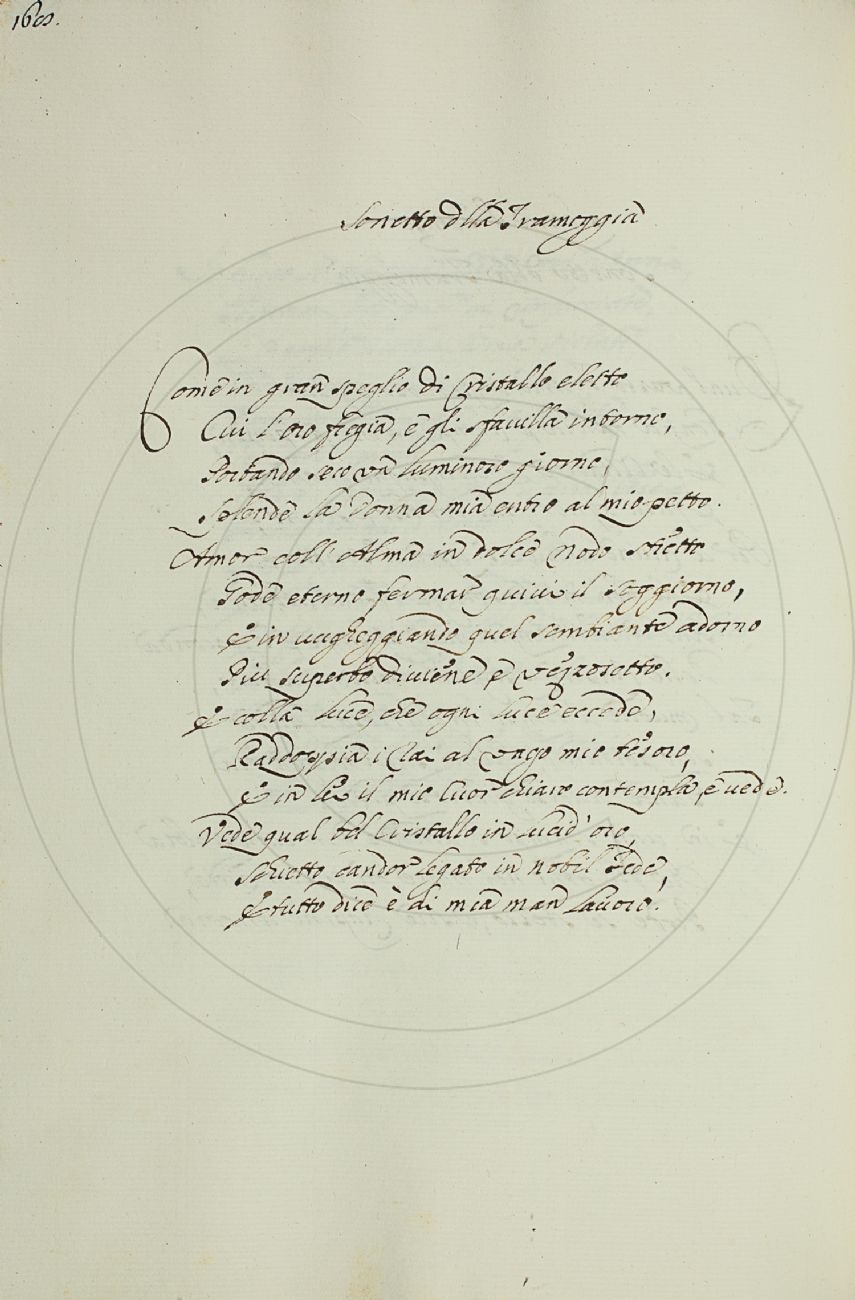 160.
Sonetto dlla Trameggia
Come in gran speglio di Cristallo eletto
Cui l'oro fregia, e gli sfavilla intorno,
Portando seco un luminoso giorno,
Splende la Donna mia entro al mio petto.
Amor coll'Alma in dolce nodo stretto
Gode eterno fermar quivi il soggiorno,
E in vagheggiando quel sembiante adorno
Piu superbo diviene e vezzosetto.
E colla luce, che ogni luce eccede,
Raddoppia i rai al vago mio tesoro,
E in lei il mio Cuor chiaro contempla, e vede.
Vede qual bel Cristallo in lucid'oro,
Schietto candor legato in nobil Fede,
E tutto dice è di mia man lavoro.